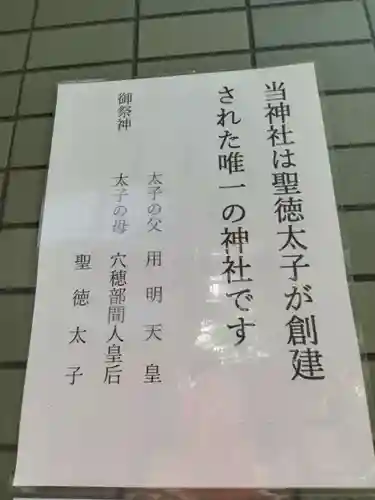 当神社は聖徳太子が創建
された唯一の神社です
御祭神
太子の父 用明天皇
太子の母 穴穂部間人皇后
聖徳太子